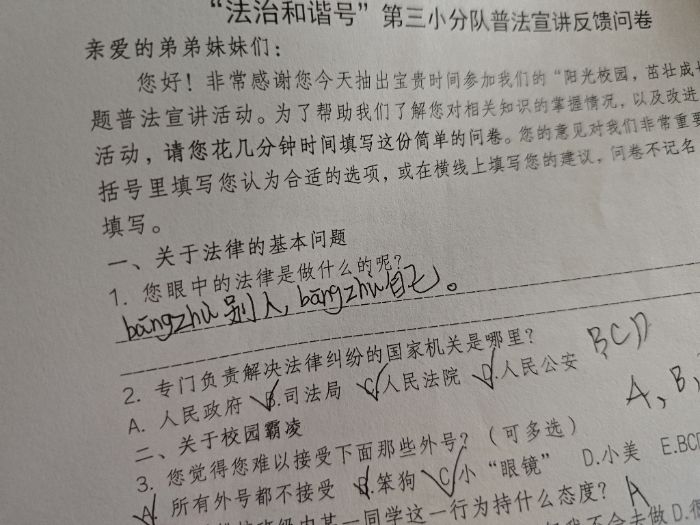 “法治和谐号”第三小分队普法宣讲反馈问卷
亲爱的弟弟妹妹们：
您好！非常感谢您今天抽出宝贵时间参加我们的“阳光校园，茁壮成长
题普法宣讲活动。为了帮助我们了解您对相关知识的掌握情况，以及改进
活动，请您花几分钟时间填写这份简单的问卷。您的意见对我们非常重要
括号里填写您认为合适的选项，或在横线上填写您的建议，问卷不记名
填写。
一、关于法律的基本问题
1. 您眼中的法律是做什么的呢？
bāngzhù别人，bāngzhù自己。
2. 专门负责解决法律纠纷的国家机关是哪里？ B,CD
A. 人民政府 B.司法局 C.人民法院 D.人民公安
二、关于校园霸凌 A、B、
3. 您觉得您难以接受下面那些外号？（可多选）
A 所有外号都不接受 B.笨狗 C.小“眼镜” D.小美 E.BCD
某一同学这一行为持什么态度？ A